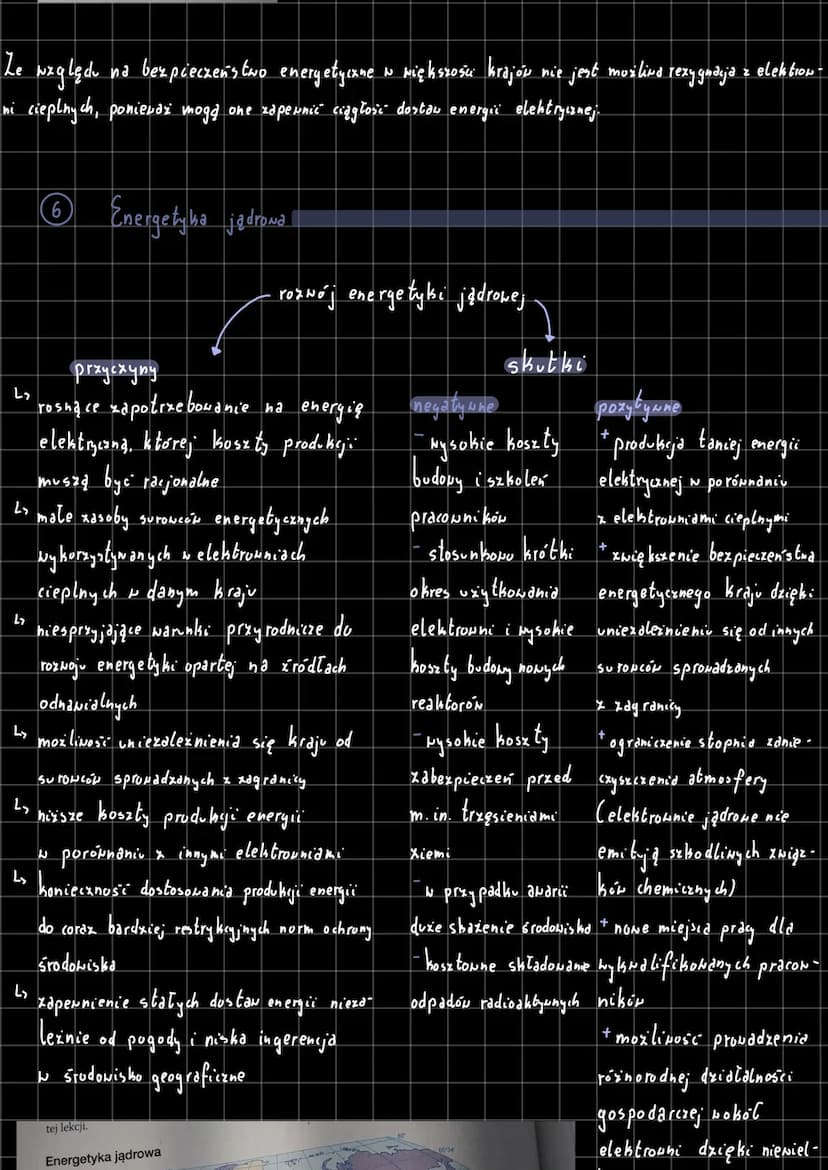 Ze względu na bezpieczeństwo energetyczne w większości krajów nie jest możliwa rezygnacja z elektrow-
ni cieplnych, ponieważ mogą one zapewnić ciągłość dostaw energii elektrycznej.
6 Energetyka jądrowa
rozwój energetyki jądrowej
przyczyny
↳ rosnące zapotrzebowanie na energię
elektryczną, której koszty produkcji
muszą być racjonalne
↳ małe zasoby surowców energetycznych
wykorzystywanych w elektrowniach
cieplnych w danym kraju
↳ niesprzyjające warunki przyrodnicze do
rozwoju energetyki opartej na źródłach
odnawialnych
↳ możliwość uniezależnienia się kraju od
surowców sprowadzanych z zagranicy
↳ niższe koszty produkcji energii
w porównaniu z innymi elektrowniami
↳ konieczność dostosowania produkcji energii
do coraz bardziej restrykcyjnych norm ochrony
środowiska
↳ zapewnienie stałych dostaw energii nieza-
leżnie od pogody i niska ingerencja
w środowisko geograficzne
skutki
negatywne
- wysokie koszty
budowy i szkoleń
pracowników
- stosunkowo krótki
okres użytkowania
elektrowni i wysokie
koszty budowy nowych
reaktorów
- wysokie koszty
zabezpieczeń przed
m.in. trzęsieniami
ziemi
- w przypadku awarii
duże skażenie środowiska
- kosztowne składowanie
odpadów radioaktywnych
pozytywne
+ produkcja taniej energii
elektrycznej w porównaniu
z elektrowniami cieplnymi
+ zwiększenie bezpieczeństwa
energetycznego kraju dzięki
uniezależnieniu się od innych
surowców sprowadzanych
z zagranicy
+ ograniczenie stopnia zanie-
czyszczenia atmosfery
(elektrownie jądrowe nie
emitują szkodliwych związ-
ków chemicznych)
+ nowe miejsca pracy dla
wykwalifikowanych pracow-
ników
+ możliwość prowadzenia
różnorodnej działalności
gospodarczej wokół
elektrowni dzięki niewiel-
tej lekcji.
Energetyka jądrowa